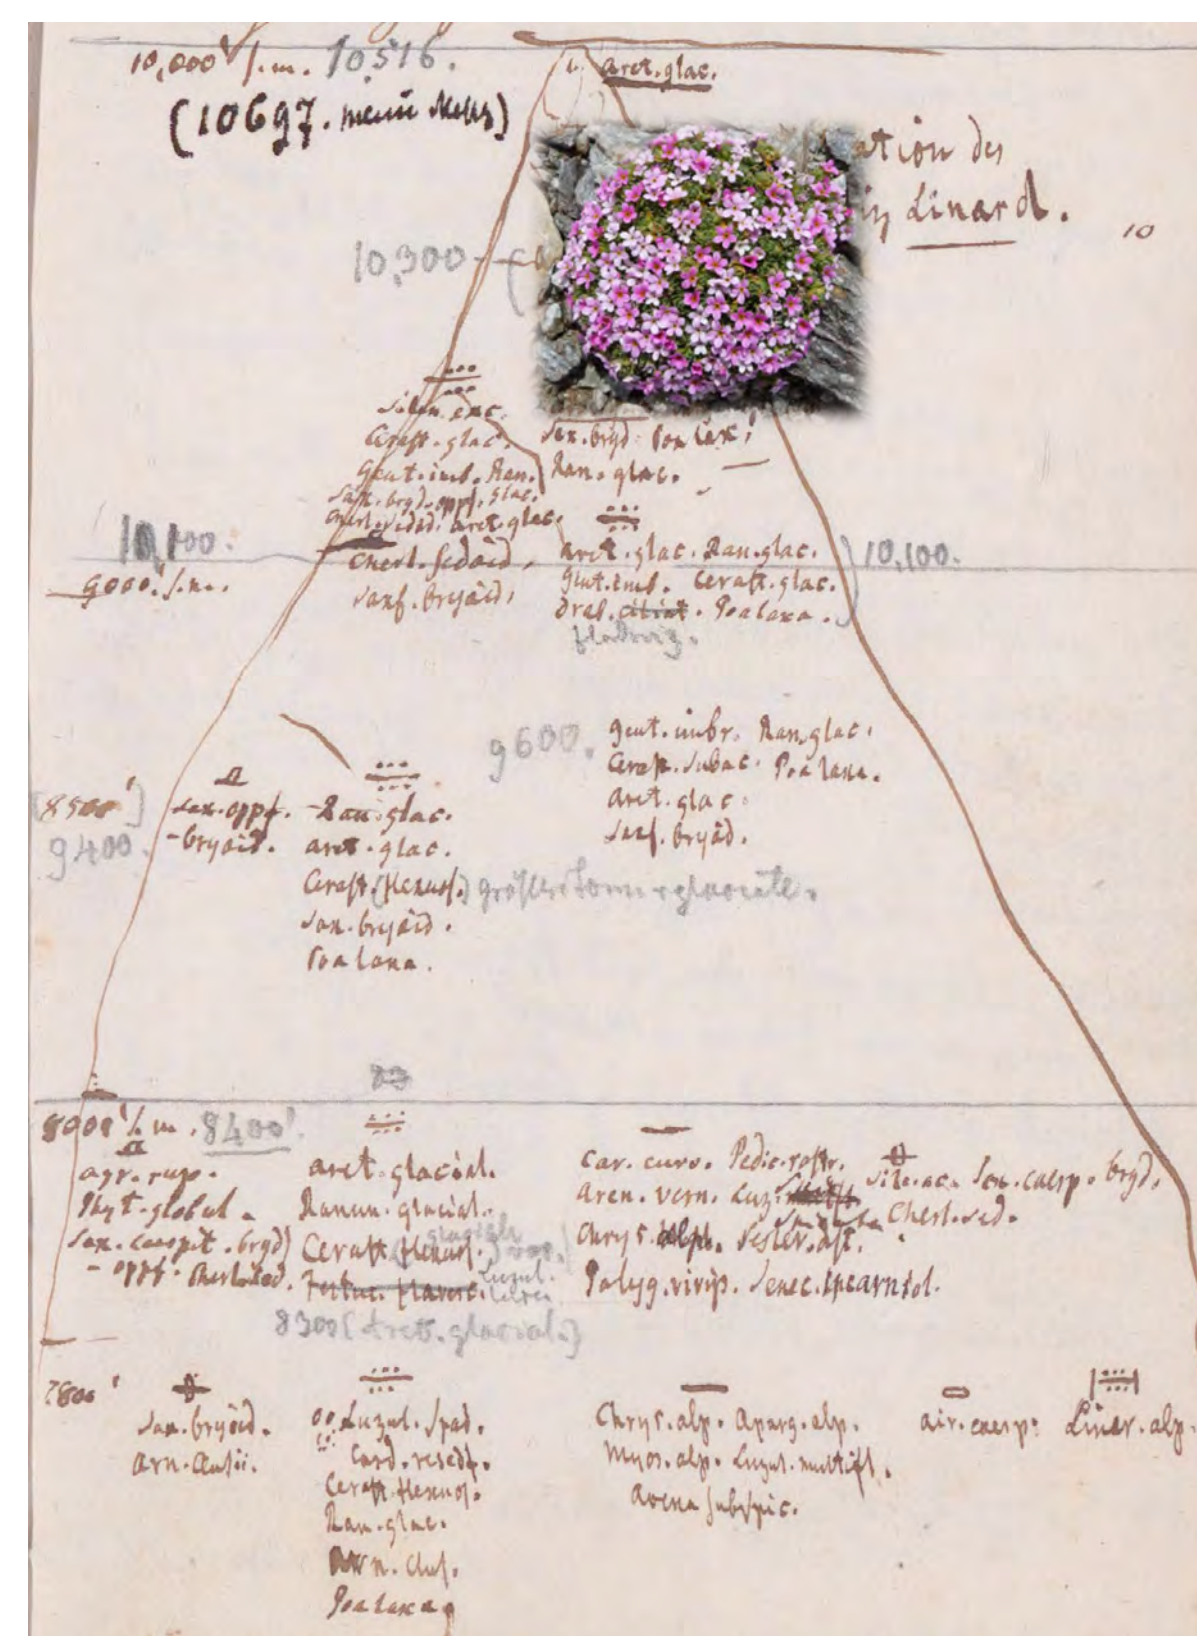 10,000' s.m. 10,516.
aret. glac.
(10697. Meyer)
ation des
Linard.
10
10,300
Silen. exc.
Cerast. glac.
Gent. imb. Ran.
Sax. bryd. oppf. glac.
Cherl. sedoid. aret. glac.
Sax. bryd. Poa lax.
Ran. glac.
10,100.
9000' s.m.
Cherl. sedoid.
Saxf. bryoid.
aret. glac. Ran. glac.
Gent. imb. Cerast. glac.
Drab. ciliat. Poa laxa.
fladniz.
10,100.
9600.
Gent. imbr. Ran. glac.
Cerast. subac. Poa laxa.
aret. glac.
Saxf. bryoid.
(8500')
9400.
Sax. oppf.
- bryoid.
- Ran. glac.
aret. glac.
Cerast. (flexuos.)
Sax. bryoid.
Poa laxa.
8000' s.m. 8400'.
agr. rup.
Phyt. globul.
Sax. caespit. bryd)
- oppf. Cherl. sed.
aret. glacial.
Ranun. glacial.
Cerast. (flexuos.)
Festuc. flavesc. Luzul.
lutea
8300 (Aret. glacial.)
Car. curv. Pedic. rostr.
Aren. vern. Luz.
spicata
Chrys. alp. Sesler. dist.
Polyg. vivip. Senec. incarn. fol.
Sile. ac. Sax. caesp. bryd.
Cherl. sed.
7800'
Sax. bryoid.
Arn. Clusii.
Luzul. spad.
Card. resedf.
Cerast. flexuos.
Ran. glac.
Arn. Clus.
Poa laxa
Chrys. alp. Aparg. alp.
Myos. alp. Luzul. multifl.
Avena subspic.
air. caesp.
Linar. alp.